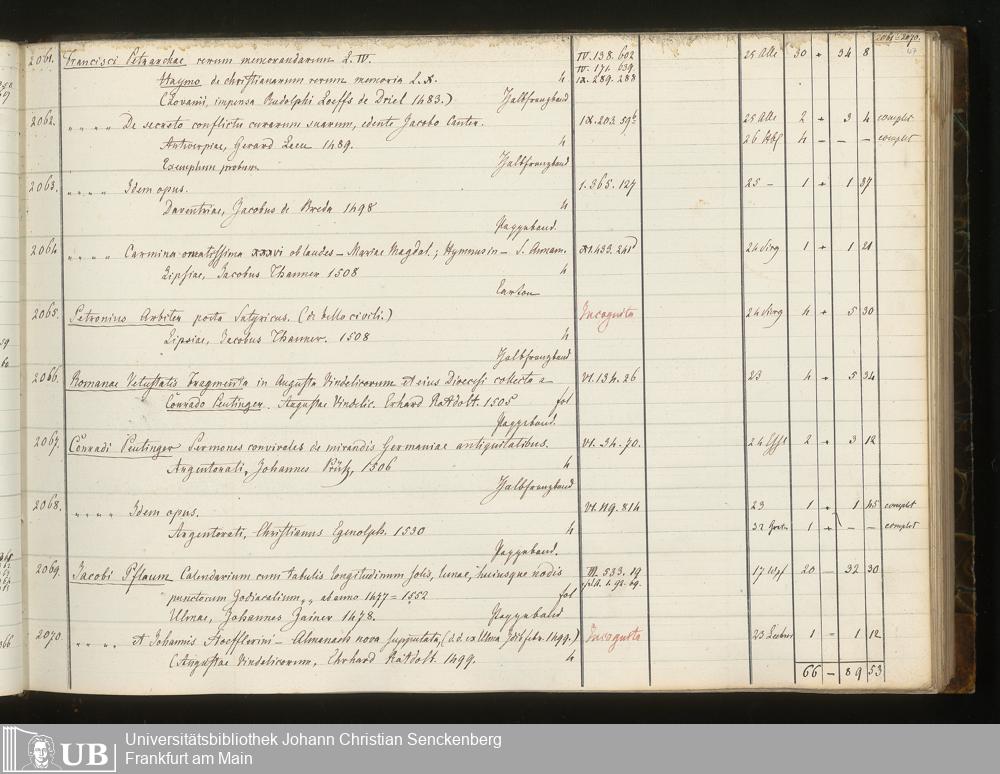 2061 – 2070.
2061. Francisci Petrarchae rerum memorandarum L. IV. IV. 138. 602 25 Alle 30 + 34 8
IV. 171. 639
Hayno de christianarum rerum memoria L. X. 4 IX. 289. 288
(Lovanii, impensa Rudolphi Loeffs de Driel 1483.) Halbfranzband
2062. " " " " De secreto conflictu curarum suarum, edente Jacobo Canter. IX. 203. 59b 25 Alle 2 + 3 4 complet
Antverpiae, Gerard Leeu 1489. 4 26 4 – – – complet
Exemplum probum Halbfranzband
2063. " " " " Idem opus. 1. 365. 127 25 – 1 + 1 37
Daventriae, Jacobus de Breda 1498 4
Pappeband.
2064 " " " " Carmina ornatissima xxxvi ob laudes – Mariae Magdal.; Hymnus in – S. Annam. XI. 433. 241 24 1 + 1 21
Lipsiae, Jacobus Thanner 1508 4
Carton
2065. Petronius Arbiter poeta Satyricus. (de bello civili.) Incognita 24 4 + 5 30
Lipsiae, Jacobus Thanner. 1508 4
Halbfranzband
2066. Romanae Vetustatis Fragmenta in Augusta Vindelicorum et eius Dioecesi collecta a VI. 134. 26 23 4 + 5 34
Conrado Peutinger. Augustae Vindelic. Erhard Ratdolt. 1505 fol
Pappeband.
2067. Conradi Peutinger Sermones convivales de mirandis Germaniae antiquitatibus. VI. 34. 70. 24 2 + 3 12
Argentorati, Johannes Prüss, 1506 4
Halbfranzband
2068. " " " " Idem opus. VI. 119. 814 23 1 + 1 45 complet
Argentorati, Christianus Egenolph. 1530 4 32 1 + – – complet
Pappeband.
2069. Jacobi Pflaum Calendarium cum tabulis longitudinum solis, lunae, huiusque nodis III. 533. 19 17 20 – 32 30
punctorum Zodiacalium, ab anno 1477 = 1552 fol
Ulmae, Johannes Zainer 1478. Pappeband
2070. " " " " et Johannis Stoefflerini – Almanach nova supputata, (d. d. ex Ulma 1499.) Incognita 23 1 – 1 12
(Augustae Vindelicorum, Ehrhard Ratdolt. 1499. 4
66 – 89 53
UB
Universitätsbibliothek Johann Christian Senckenberg
Frankfurt am Main